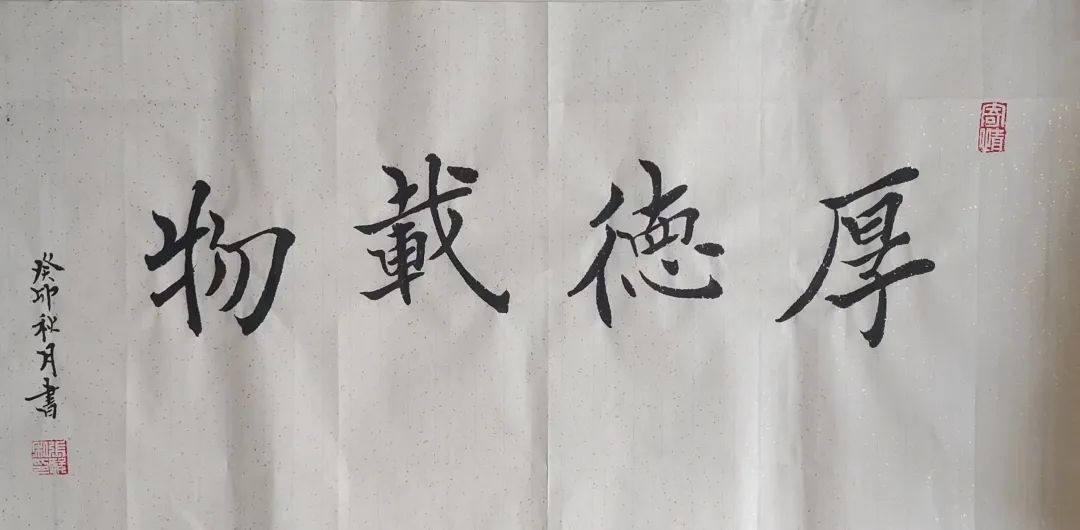 厚德載物
癸卯秋月書